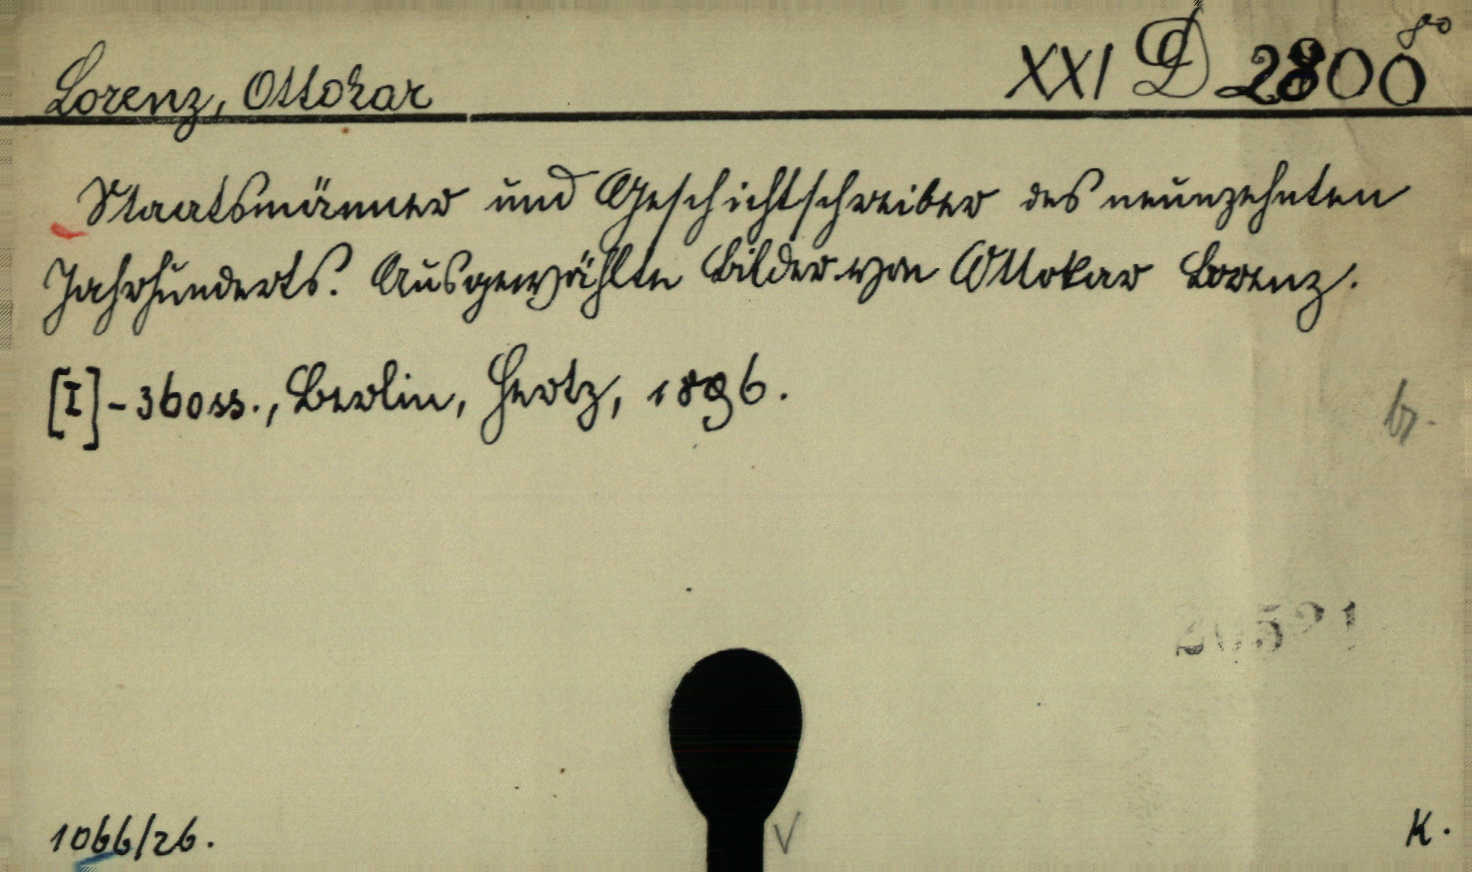 Lorenz, Ottokar
XXI D 2800 8o
Staatsmänner und Geschichtschreiber des neunzehnten
Jahrhunderts. Ausgewählte Bilder von Ottokar Lorenz.
[I]-360 ss., Berlin, Hertz, 1896.
br.
20521
1066/26.
V
K.